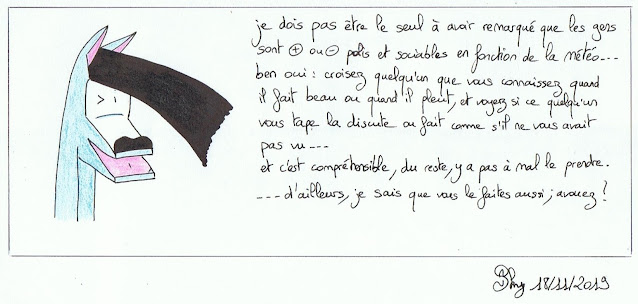 je dois pas être le seul à avoir remarqué que les gens
sont ⊕ ou ⊖ polis et sociables en fonction de la météo---
ben oui : croisez quelqu'un que vous connaissez quand
il fait beau ou quand il pleut, et voyez si ce quelqu'un
vous tape la discute ou fait comme s'il ne vous avait
pas vu---
et c'est compréhensible, du reste, y a pas à mal le prendre.
---d'ailleurs, je sais que vous le faites aussi ; avouez !
18/11/2019